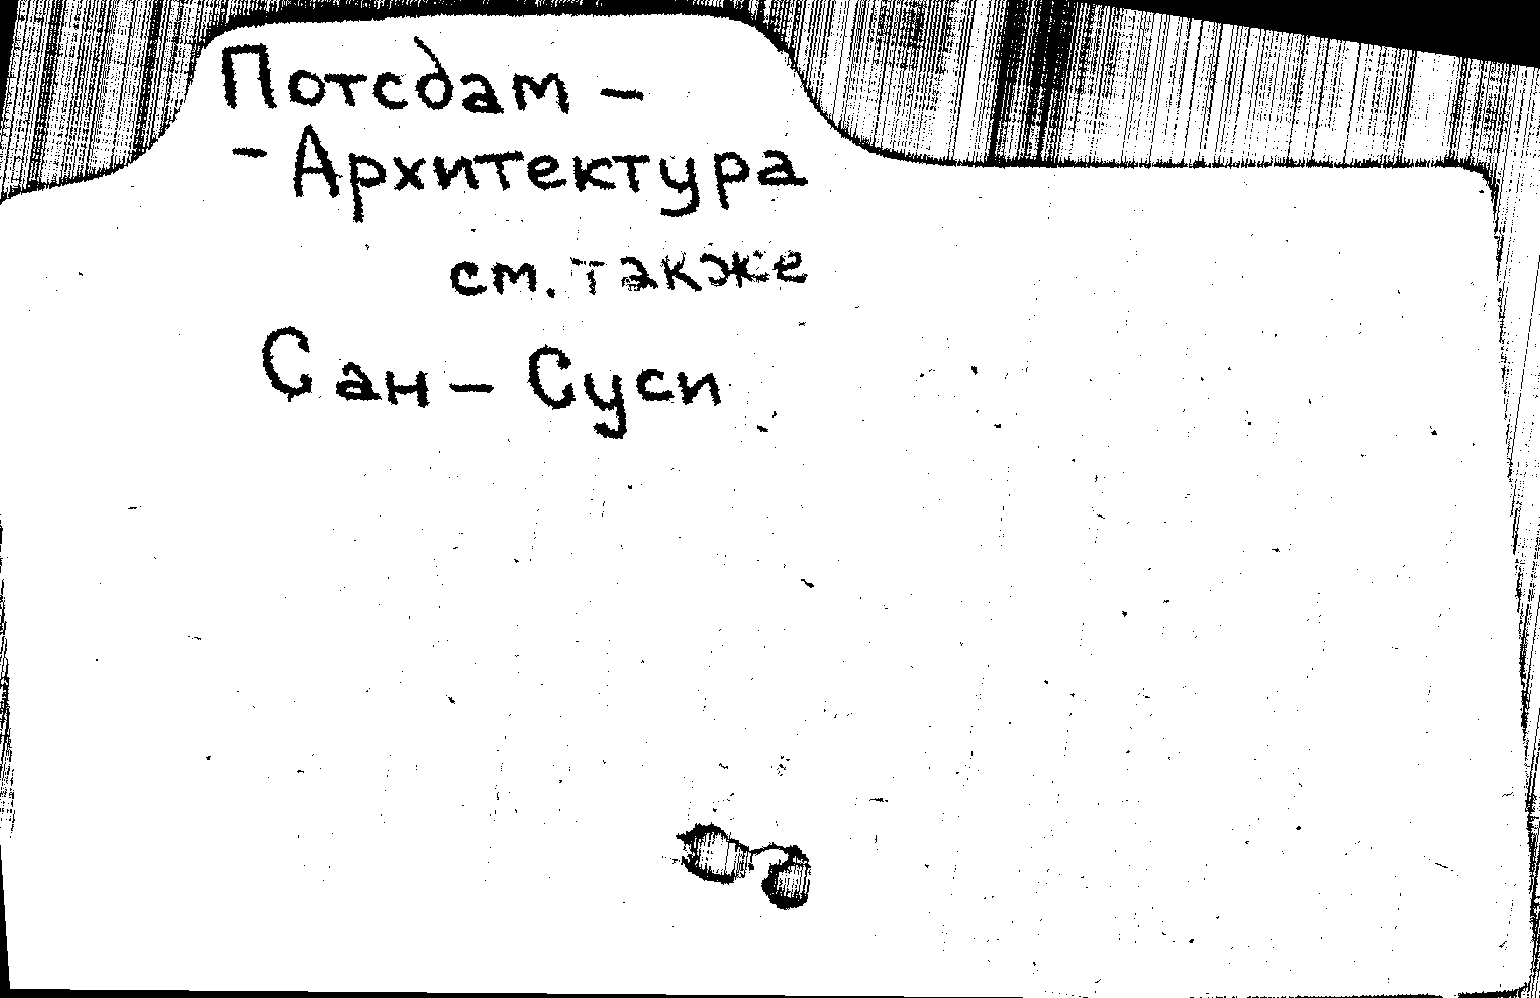 Потсдам -
- Архитектура
см. также
Сан - Суси